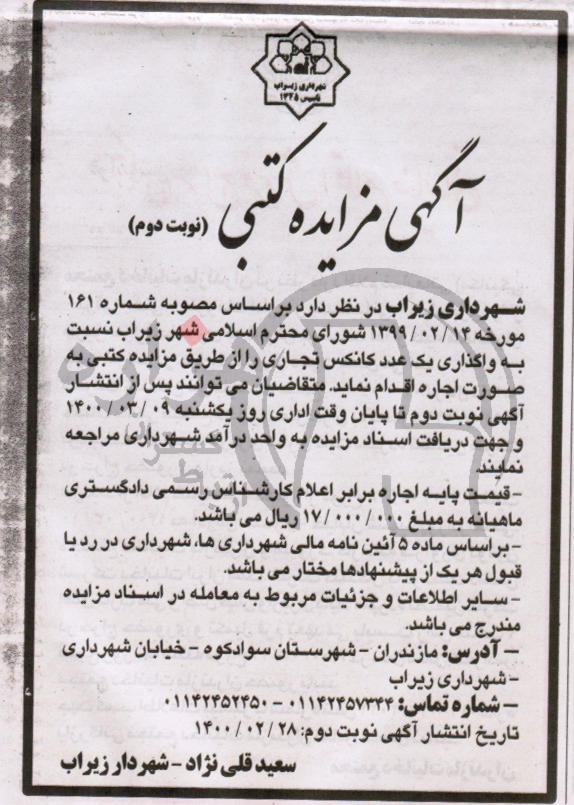 شهرداری زیراب
تاسیس ۱۳۲۵
آگهی مزایده کتبی (نوبت دوم)
شهرداری زیراب در نظر دارد براساس مصوبه شماره ۱۶۱
مورخه ۱۳۹۹/۰۲/۱۴ شورای محترم اسلامی شهر زیراب نسبت
به واگذاری یک عدد کانکس تجاری را از طریق مزایده کتبی به
صورت اجاره اقدام نماید. متقاضیان می توانند پس از انتشار
آگهی نوبت دوم تا پایان وقت اداری روز یکشنبه ۱۴۰۰/۰۳/۰۹
و جهت دریافت اسناد مزایده به واحد درآمد شهرداری مراجعه
نمایند.
-قیمت پایه اجاره برابر اعلام کارشناس رسمی دادگستری
ماهیانه به مبلغ ۱۷/۰۰۰/۰۰۰ ریال می باشد.
-براساس ماده ۵ آئین نامه مالی شهرداری ها، شهرداری در رد یا
قبول هر یک از پیشنهادها مختار می باشد.
-سایر اطلاعات و جزئیات مربوط به معامله در اسناد مزایده
مندرج می باشد.
– آدرس: مازندران - شهرستان سوادکوه - خیابان شهرداری
-شهرداری زیراب
– شماره تماس: ۰۱۱۴۲۴۵۷۳۴۴-۰۱۱۴۲۴۵۲۴۵۰
تاریخ انتشار آگهی نوبت دوم: ۱۴۰۰/۰۲/۲۸
سعید قلی نژاد - شهردار زیراب